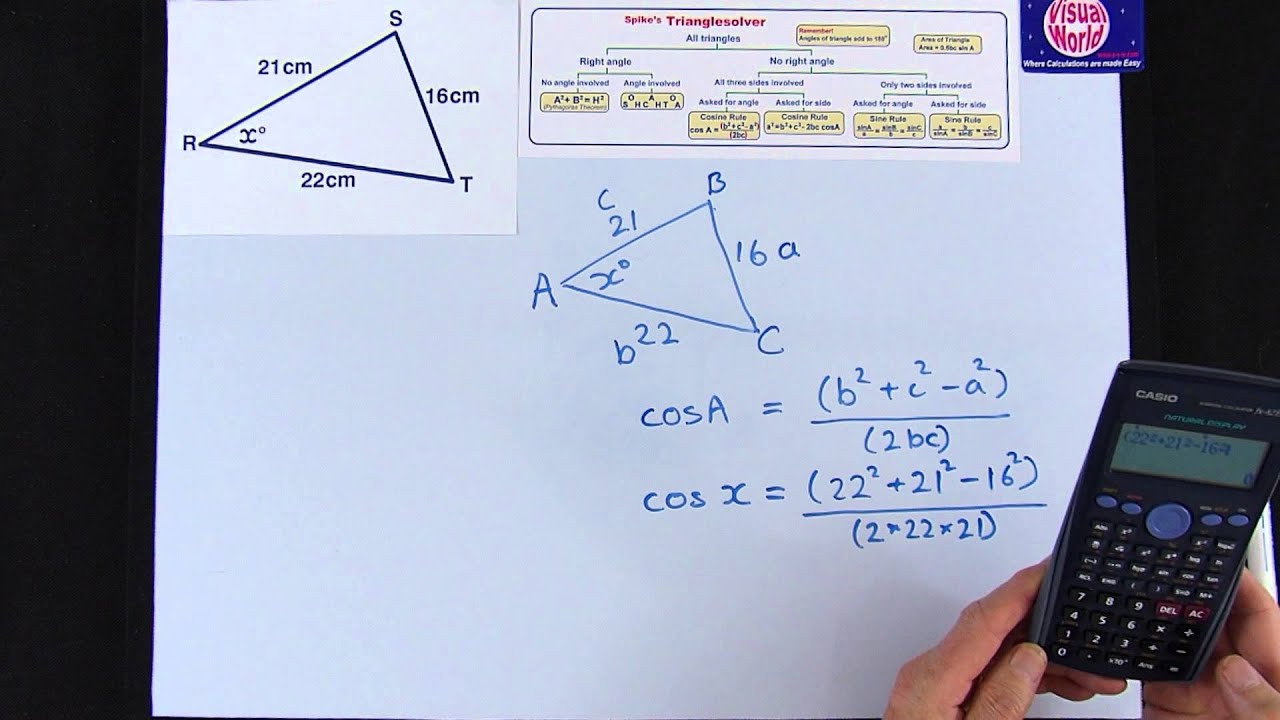 S
21cm
16cm
R
x°
22cm
T
Spike's Trianglesolver
All triangles
Remember!
Angles of triangle add to 180°
Area of Triangle
Area = 0.5bc sin A
Right angle
No right angle
No angle involved
Angle involved
All three sides involved
Only two sides involved
A²+ B²= H²
(Pythagoras Theorem)
S O H C A H T O A
Asked for angle
Asked for side
Asked for angle
Asked for side
Cosine Rule
cos A = (b²+c²-a²)
(2bc)
Cosine Rule
a²=b²+c²- 2bc cosA
Sine Rule
sinA = sinB = sinC
a b c
Sine Rule
a = b = c
sinA sinB sinC
Visual
World
Where Calculations are made Easy
B
c
21
16 a
A
x°
b 22
C
cosA = (b² + c² - a²)
(2bc)
cos x = (22² + 21² - 16²)
(2*22*21)
CASIO
NATURAL DISPLAY
(22²+21²-16²
0
Abs
x³
x²
log
ln
(−)
hyp
sin
cos
tan
RCL
ENG
(
)
S⇔D
M+
7 8 9 DEL AC
4 5 6 × ÷
1 2 3 + −
0 · Ans =